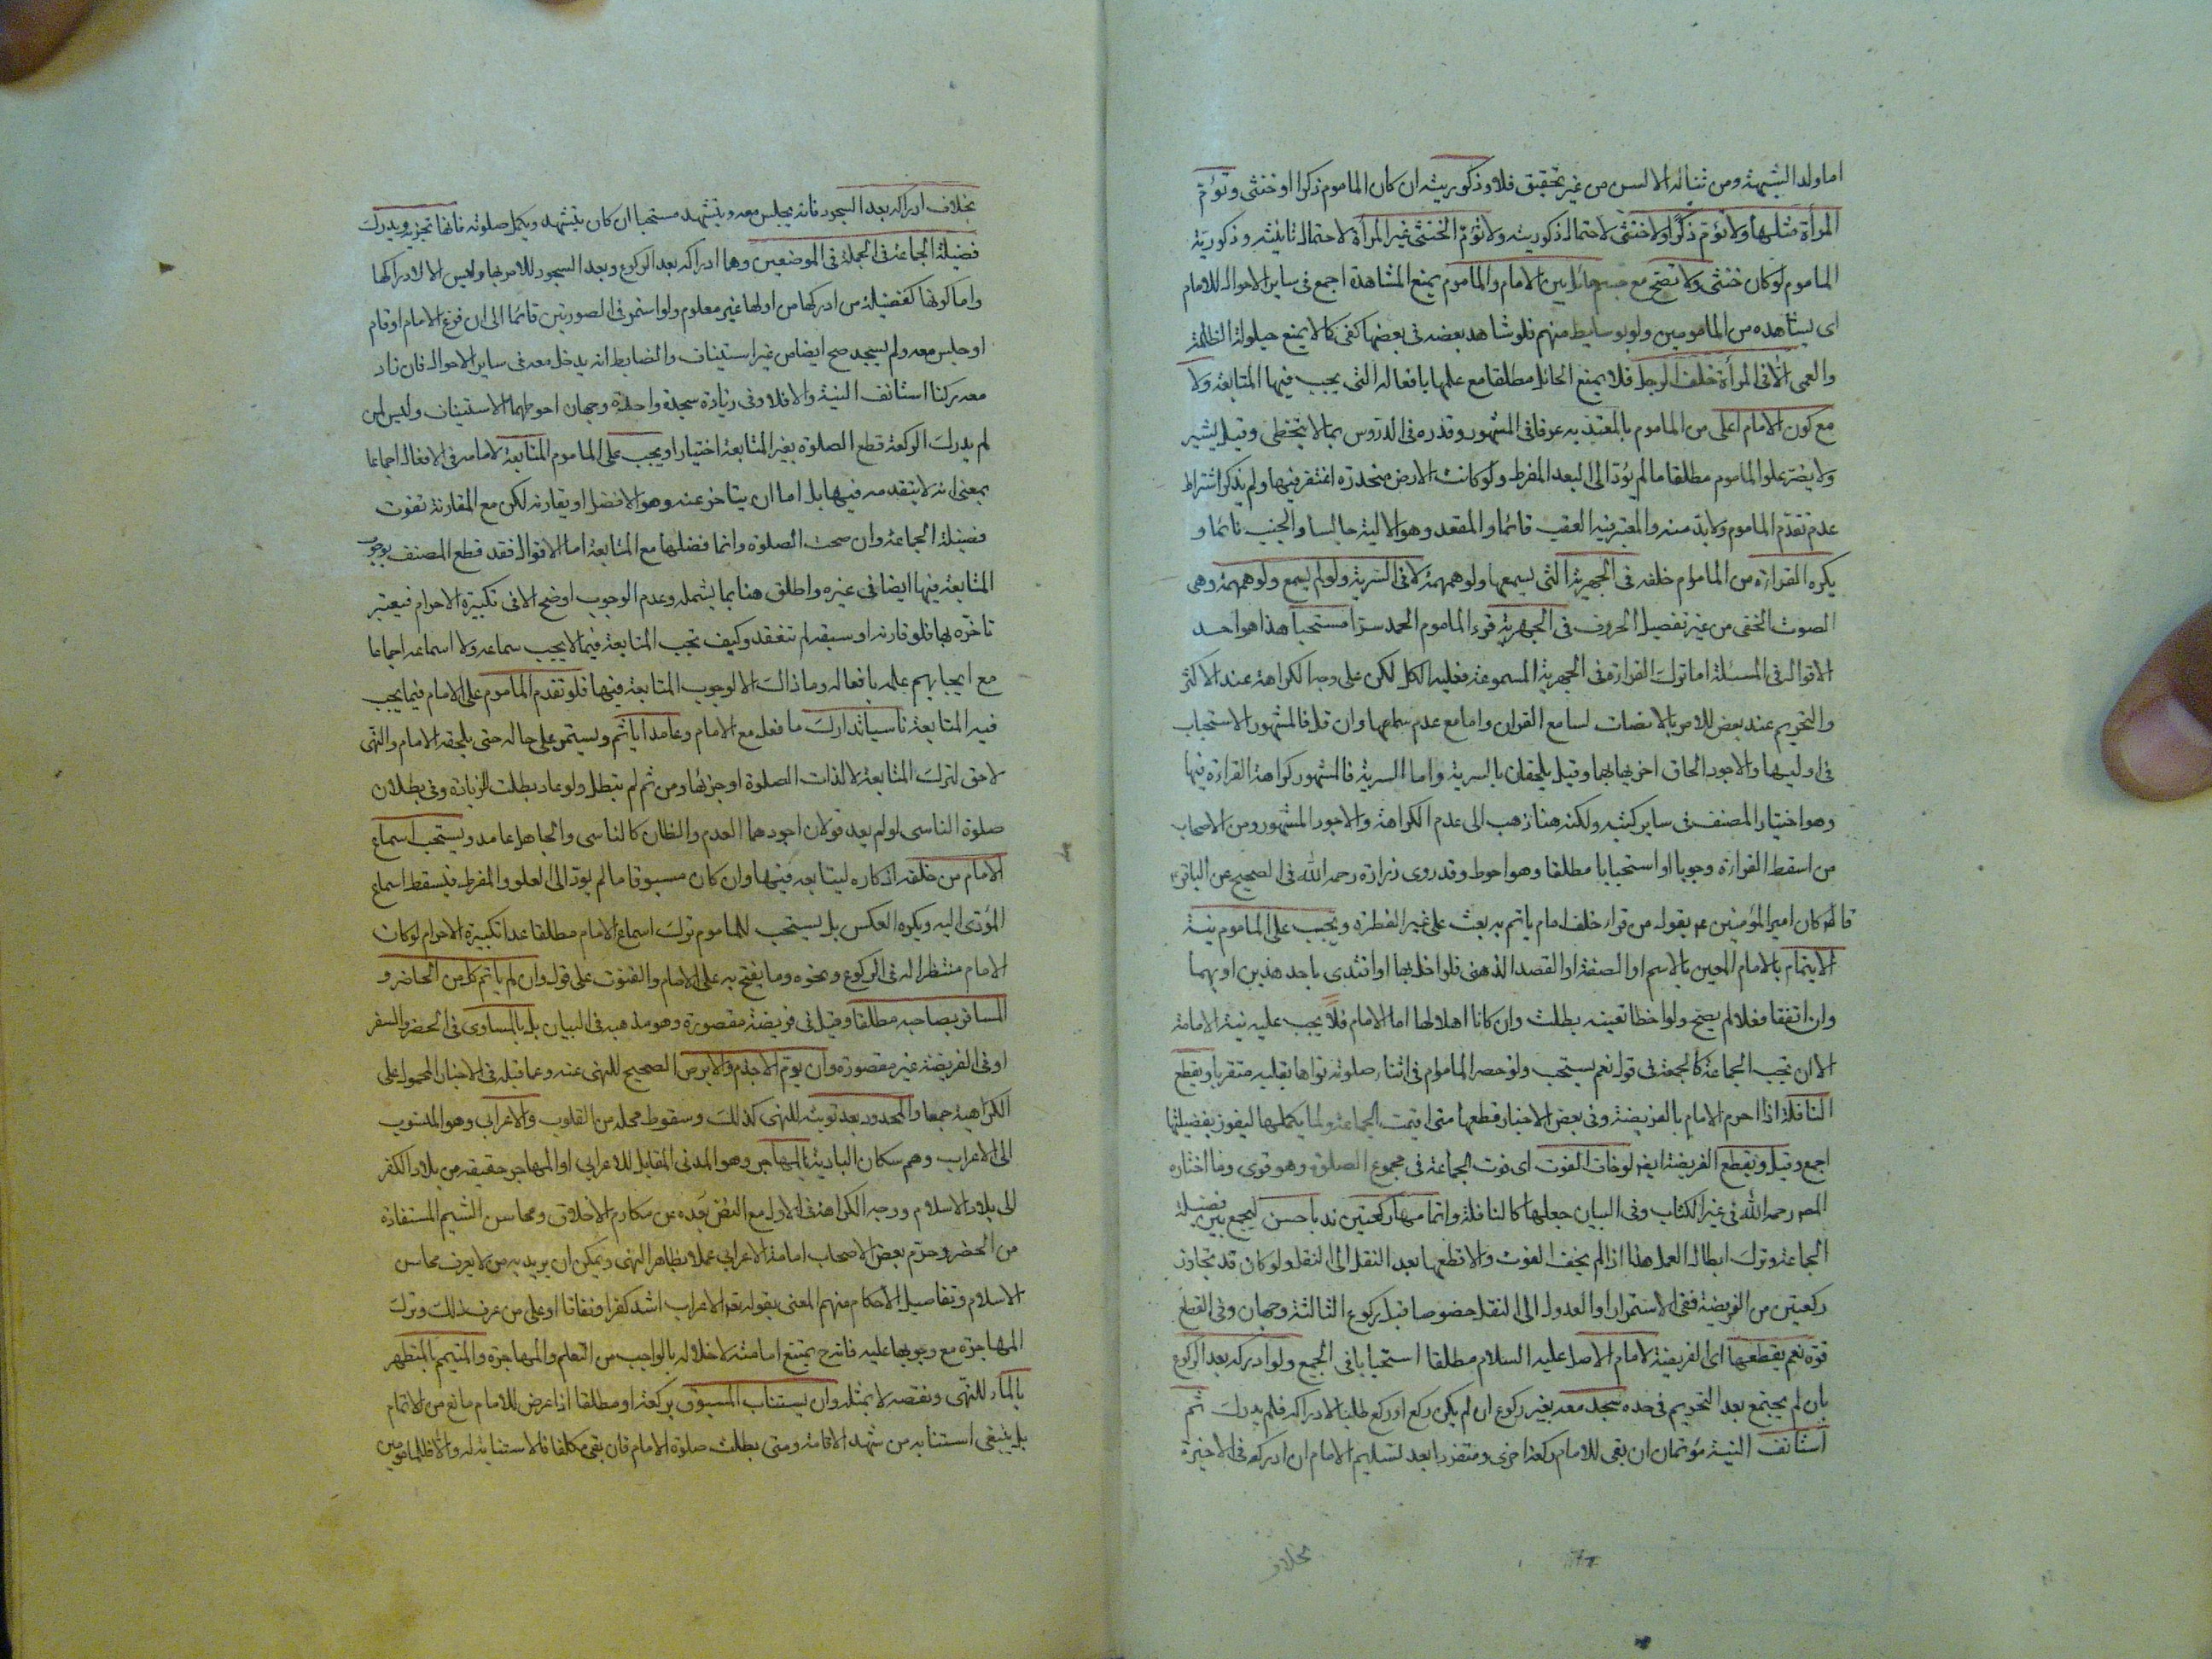 اما ولد الشبهة ومن تناله الالسن من غير تحقيق فلا وذكوريته ان كان الماموم ذكرا او خنثى وتؤم
المرأة مثلها ولا تؤم ذكرا ولا خنثى لاحتمال ذكوريته ولا تؤم الخنثى غير المرأة لاحتمال تانيثه وذكورية
الماموم لو كان خنثى ولا تصح مع جسم حائل بين الامام والماموم يمنع المشاهدة اجمع فى ساير الاحوال للامام
اى يشاهده من المامومين ولو بوسايط منهم فلو شاهد بعضه فى بعضها كفى كما لا يمنع حيلولة الظلمة
والعمى الا فى المرأة خلف الرجل فلا يمنع الحائل مطلقا مع علمها بافعاله التى يجب فيها المتابعة ولا
مع كون الامام اعلى من الماموم بالمعتد به عرفا فى المشهور وقدره فى الدروس بما لا يتخطى وقيل بشبر
ولا يضر علو الماموم مطلقا ما لم يؤد الى البعد المفرط ولو كانت الارض منحدرة اغتفر فيها ولم يذكر اشتراط
عدم تقدم الماموم ولا بد منه والمعتبر فيه العقب قائما والمقعد وهو الالية جالسا والجنب نائما و
يكره القراءة من الماموم خلفه فى الجهرية التى يسمعها ولو همهمة لا فى السرية ولو لم يسمع ولو همهمة وهى
الصوت الخفى من غير تفصيل الحروف فى الجهرية قرء الماموم الحمد سرا مستحبا هذا هو احد
الاقوال فى المسئلة اما ترك القراءة فى الجهرية المسموعة فعليه الكل لكن على وجه الكراهة عند الاكثر
والتحريم عند بعض للامر بالانصات لسامع القران واما مع عدم سماعها وان قل فالمشهور الاستحباب
فى اوليها والاجود الحاق اخريها بهما وقيل يلحقان بالسرية واما السرية فالمشهور كراهة القراءة فيها
وهو اختيار المصنف فى ساير كتبه ولكنه هنا ذهب الى عدم الكراهة والاجود المشهور ومن الاصحاب
من اسقط القراءة وجوبا او استحبابا مطلقا وهو احوط وقد روى زرارة رحمه الله فى الصحيح عن الباقر
قال كان امير المؤمنين يقول من قراء خلف امام ياتم به بعث على غير الفطرة ويجب على الماموم نية
الايتمام بالامام المعين بالاسم او الصفة او القصد الذهنى فلو اخل بها او اقتدى باحد هذين او بهما
وان اتفقا فعلا لم يصح ولو اخطا تعيينه بطلت وان كانا اهلا لها اما الامام فلا يجب عليه نية الامامة
الا ان تجب الجماعة كالجمعة فى قول نعم يستحب ولو حصر الماموم فى اثناء صلوته نواها بقلبه متقربا ويقطع
النافلة اذا احرم الامام بالفريضة وفى بعض الاخبار قطعها متى اقيمت الجماعة ولما يكملها ليفوز بفضيلتها
اجمع وقيل ويقطع الفريضة ايضا لو خاف الفوت اى فوت الجماعة فى مجموع الصلوة وهو قوى وما اختاره
المصه رحمه الله فى غير الكتاب وفى البيان جعلها كالنافلة واتمامها ركعتين ندبا حسن ليجمع بين فضيلة
الجماعة وترك ابطال العمل هذا اذا لم يخف الفوت والا قطعها بعد النقل الى النفل ولو كان قد تجاوز
ركعتين من الفريضة ففى الاستمرار او العدول الى النفل خصوصا قبل ركوع الثالثة وجهان وفى القطع
قوة نعم يقطعها اى الفريضة لامام الاصل عليه السلام مطلقا استحبابا فى الجميع ولو ادركه بعد الركوع
بان لم يجتمع بعد التحريم فى حده سجد معه بغير ركوع ان لم يكن ركع او ركع طلبا لادراكه فلم يدرك ثم
استانف النية مؤتما ان بقى للامام ركعة اخرى ومنفردا بعد تسليم الامام ان ادركه فى الاخيرة
بخلاف
بخلاف ادراكه بعد السجود فانه يجلس معه ويتشهد مستحبا ان كان يتشهد ويكمل صلوته فانها تجزيه ويدرك
فضيلة الجماعة فى الجملة فى الموضعين وهما ادراكه بعد الركوع وبعد السجود للامر بها وليس الا لادراكها
واما كونها كفضيلة من ادركها من اولها فغير معلوم ولو استمر فى الصورتين قائما الى ان فرغ الامام او قام
او جلس معه ولم يسجد صح ايضا من غير استيناف والضابط انه يدخل معه فى ساير الاحوال فان زاد
معه ركنا استانف النية والا فلا وفى زيادة سجدة واحدة وجهان احوطهما الاستيناف وليس لمن
لم يدرك الركعة قطع الصلوة بغير المتابعة اختيارا ويجب على الماموم المتابعة لامامه فى الافعال اجماعا
بمعنى انه لا يتقدمه فيها بل اما ان يتاخر عنه وهو الافضل او يقارنه لكن مع المقارنة تفوت
فضيلة الجماعة وان صحت الصلوة وانما فضلها مع المتابعة اما الاقوال فقد قطع المصنف بوجوب
المتابعة فيها ايضا فى غيره واطلق هنا بما يشمله وعدم الوجوب اوضح الا فى تكبيرة الاحرام فيعتبر
تاخره بها فلو قارنه او سبقه لم تنعقد وكيف تجب المتابعة فيما لا يجب سماعه ولا اسماعه اجماعا
مع ايجابهم علمه بافعاله وما ذاك الا لوجوب المتابعة فيها فلو تقدم الماموم على الامام فيما يجب
فيه المتابعة ناسيا تدارك ما فعل مع الامام وعامدا ياثم ويستمر على حاله حتى يلحقه الامام والنهى
لاحق لترك المتابعة لا لذات الصلوة او جزئها ومن ثم لم تبطل ولو عاد بطلت للزيادة وفى بطلان
صلوة الناسى لو لم يعد قولان اجودهما العدم والظان كالناسى والجاهل عامد ويستحب اسماع
الامام من خلفه اذكاره ليتابعه فيها وان كان مسبوقا ما لم يؤد الى العلو المفرط فيسقط اسماع
المؤدى اليه ويكره العكس بل يستحب للماموم ترك اسماع الامام مطلقا عدا تكبيرة الاحرام لو كان
الامام منتظرا له فى الركوع ونحوه وما يفتح به على الامام والقنوت على قول وان لم ياتم كل من الحاضر و
المسافر بصاحبه مطلقا وقيل فى فريضة مقصورة وهو مذهبه فى البيان بل بالمساوى فى الحضر والسفر
او فى الفريضة غير مقصورة وان يؤم الاجذم والابرص الصحيح للنهى عنه وعما قبله فى الاخبار المحمول على
الكراهية جمعا والمحدود بعد توبته للنهى كذلك وسقوط محله من القلوب والاعرابى وهو المنسوب
الى الاعراب وهم سكان البادية بالمهاجر وهو المدنى المقابل للاعرابى او المهاجر حقيقة من بلاد الكفر
الى بلاد الاسلام ووجه الكراهة فى الاول مع النص بعده عن مكارم الاخلاق ومحاسن الشيم المستفادة
من الحضر وحرم بعض الاصحاب امامة الاعرابى عملا بظاهر النهى ويمكن ان يريد به من لا يعرف محاسن
الاسلام وتفاصيل الاحكام منهم المعنى بقوله تعه الاعراب اشد كفرا ونفاقا او على من عرف ذلك وترك
المهاجرة مع وجوبها عليه فانه ح يمتنع امامته لاخلاله بالواجب من التعلم والمهاجرة والمتيمم بالمتطهر
بالماء للنهى ونقصه لا بمثله وان يستناب المسبوق بركعة او مطلقا اذا عرض للامام مانع من الاتمام
بل ينبغى استنابة من شهد الاقامة ومتى بطلت صلوة الامام فان بقى مكلفا فالاستنابة له والا فللمامومين